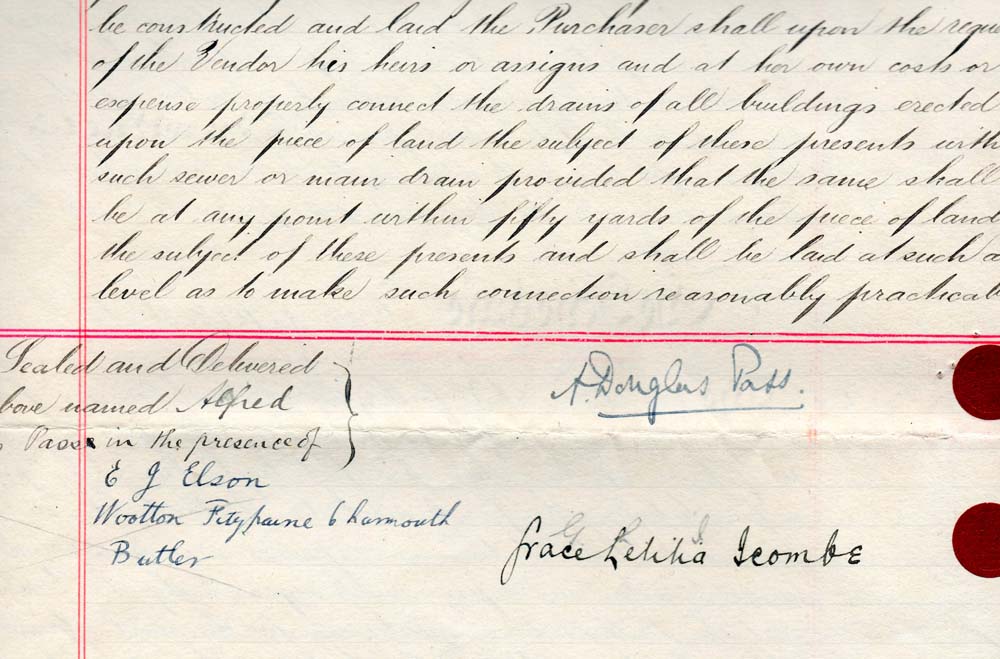 be constructed and laid the Purchaser shall upon the reque
of the Vendor his heirs or assigns and at her own costs or
expense properly connect the drains of all buildings erected
upon the piece of land the subject of these presents with
such sewer or main drain provided that the same shall
be at any point within fifty yards of the piece of land
the subject of these presents and shall be laid at such a
level as to make such connection reasonably practicab
Sealed and Delivered
bove named Alfred
s Pass in the presence of
A. Douglas Pass.
E J Elson
Wootton Fitzpaine Charmouth
Butler
Grace Letitia Icombe